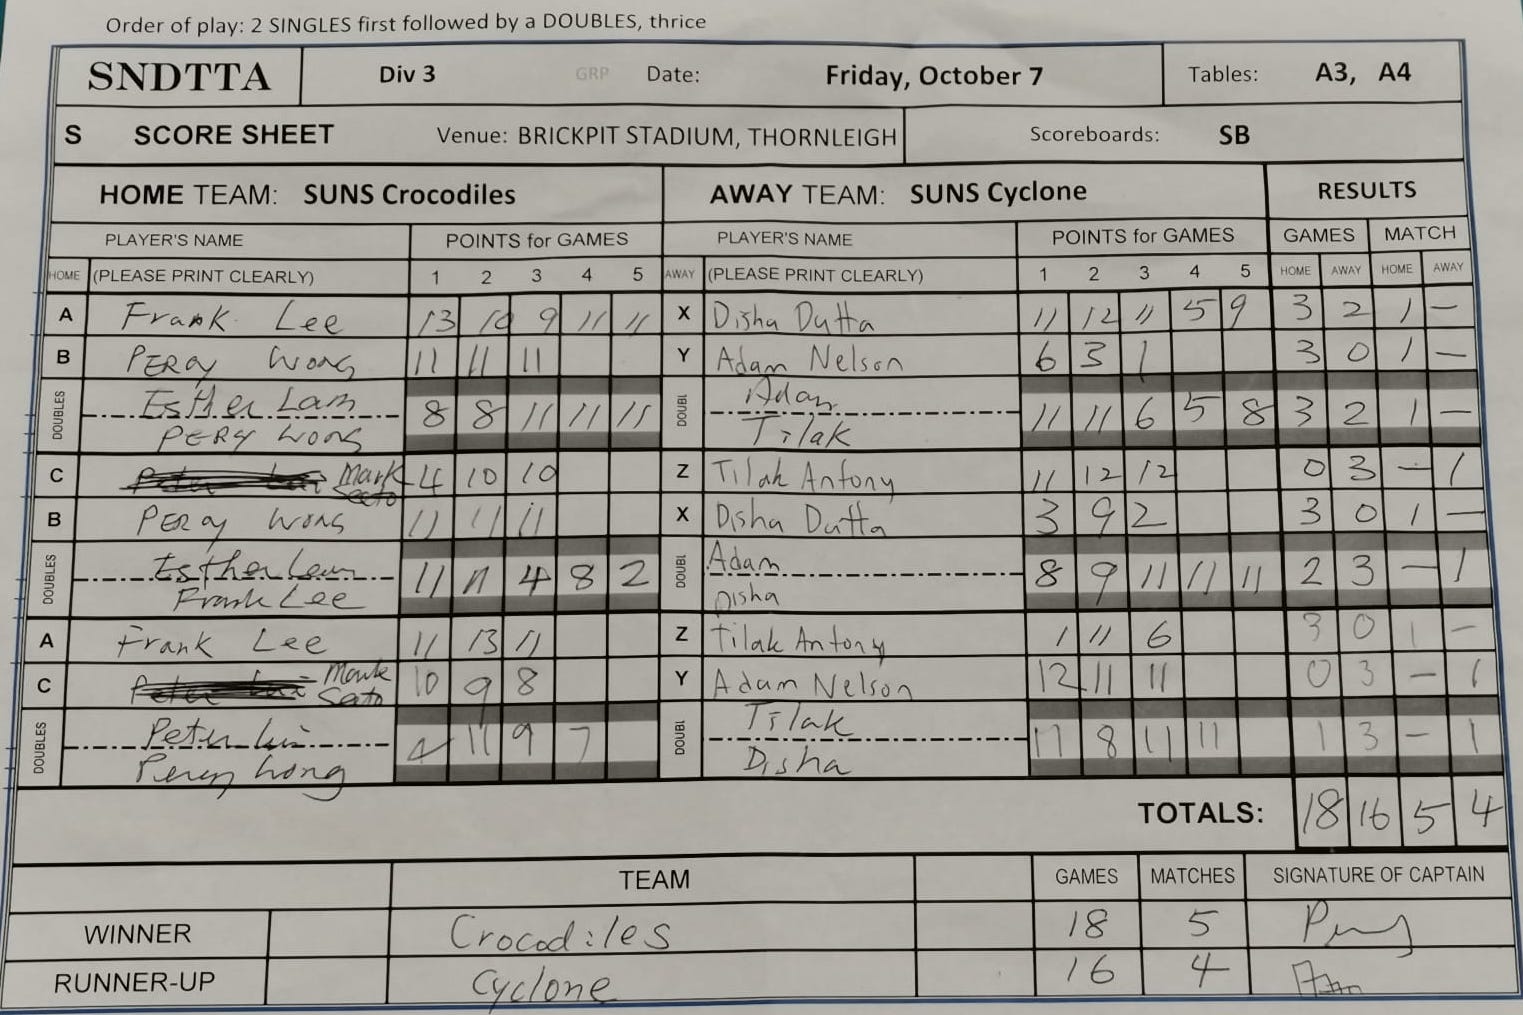 Order of play: 2 SINGLES first followed by a DOUBLES, thrice
SNDTTA Div 3 GRP Date: Friday, October 7 Tables: A3, A4
S SCORE SHEET Venue: BRICKPIT STADIUM, THORNLEIGH Scoreboards: SB
HOME TEAM: SUNS Crocodiles AWAY TEAM: SUNS Cyclone RESULTS
PLAYER'S NAME POINTS for GAMES PLAYER'S NAME POINTS for GAMES GAMES MATCH
HOME (PLEASE PRINT CLEARLY) 1 2 3 4 5 AWAY (PLEASE PRINT CLEARLY) 1 2 3 4 5 HOME AWAY HOME AWAY
A Frank Lee 13 10 9 11 11 X Disha Dutta 11 12 11 5 9 3 2 1 -
B PERCY WONG 11 11 11 Y Adam Nelson 6 3 1 3 0 1 -
Esther Lam Adam
DOUBLES 8 8 11 11 11 DOUBL 11 11 6 5 8 3 2 1 -
PERCY WONG Tilak
C Mark Seeto 4 10 10 Z Tilak Antony 11 12 12 0 3 - 1
B PERCY WONG 11 11 11 X Disha Dutta 3 9 2 3 0 1 -
Esther Lam Adam
DOUBLES 11 11 4 8 2 DOUBL 8 9 11 11 11 2 3 - 1
Frank Lee Disha
A Frank Lee 11 13 11 Z Tilak Antony 1 11 6 3 0 1 -
C Mark Seeto 10 9 8 Y Adam Nelson 12 11 11 0 3 - 1
Peter Tilak
DOUBLES 4 11 9 7 DOUBL 11 8 11 11 1 3 - 1
Percy Wong Disha
TOTALS: 18 16 5 4
TEAM GAMES MATCHES SIGNATURE OF CAPTAIN
WINNER Crocodiles 18 5
RUNNER-UP Cyclone 16 4